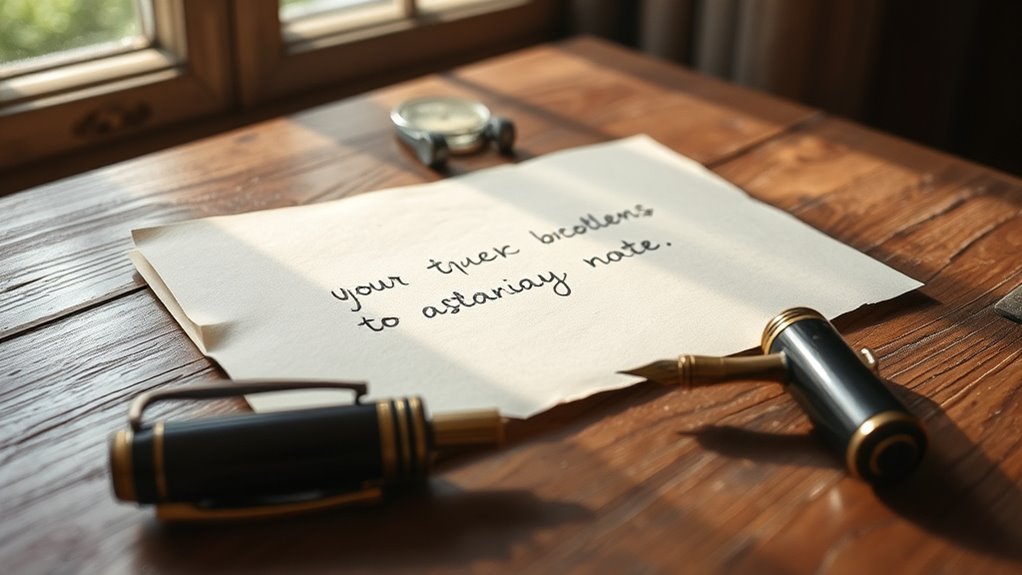 your tyuek bicotlens
to astaniay nate.